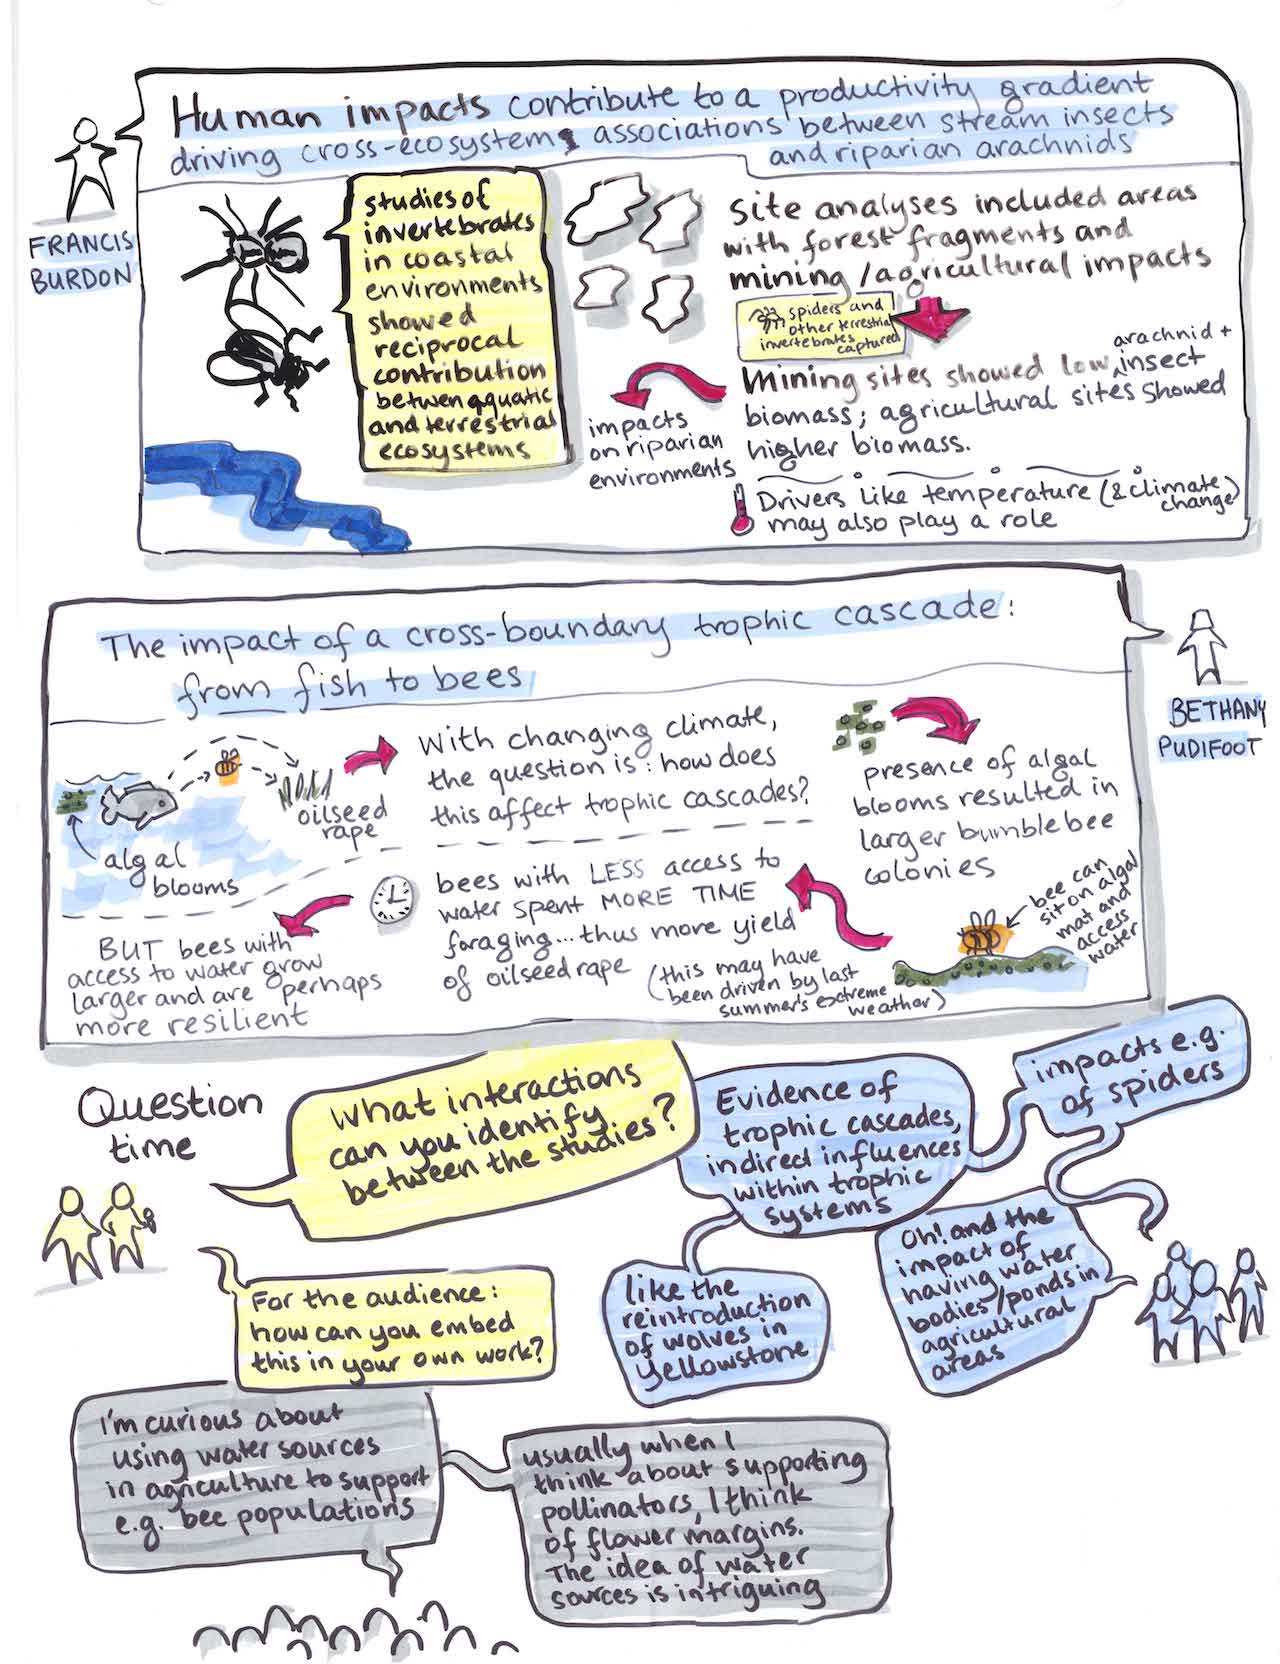 Human impacts contribute to a productivity gradient
driving cross-ecosystems associations between stream insects
and riparian arachnids
FRANCIS
BURDON
studies of
invertebrates
in coastal
environments
showed
reciprocal
contribution
betwen aquatic
and terrestrial
ecosystems
site analyses included areas
with forest fragments and
mining/agricultural impacts
spiders and
other terrestrial
invertebrates
captured
arachnid +
Mining sites showed low insect
biomass; agricultural sites showed
higher biomass.
impacts
on riparian
environments
Drivers like temperature (& climate
change)
may also play a role
The impact of a cross-boundary trophic cascade:
from fish to bees
BETHANY
PUDIFOOT
oilseed
rape
algal
blooms
With changing climate,
the question is: how does
this affect trophic cascades?
presence of algal
blooms resulted in
larger bumblebee
colonies
bee can
sit on algal
mat and
access
water
bees with LESS access to
water spent MORE TIME
foraging... thus more yield
of oilseed rape
(this may have
been driven by last
summer's extreme
weather)
BUT bees with
access to water grow
larger and are perhaps
more resilient
Question
time
What interactions
can you identify
between the studies?
Evidence of
trophic cascades,
indirect influences
within trophic
systems
impacts e.g.
of spiders
like the
reintroduction
of wolves in
Yellowstone
Oh! and the
impact of
having water
bodies/ponds in
agricultural
areas
For the audience:
how can you embed
this in your own work?
I'm curious about
using water sources
in agriculture to support
e.g. bee populations
usually when I
think about supporting
pollinators, I think
of flower margins.
The idea of water
sources is intriguing